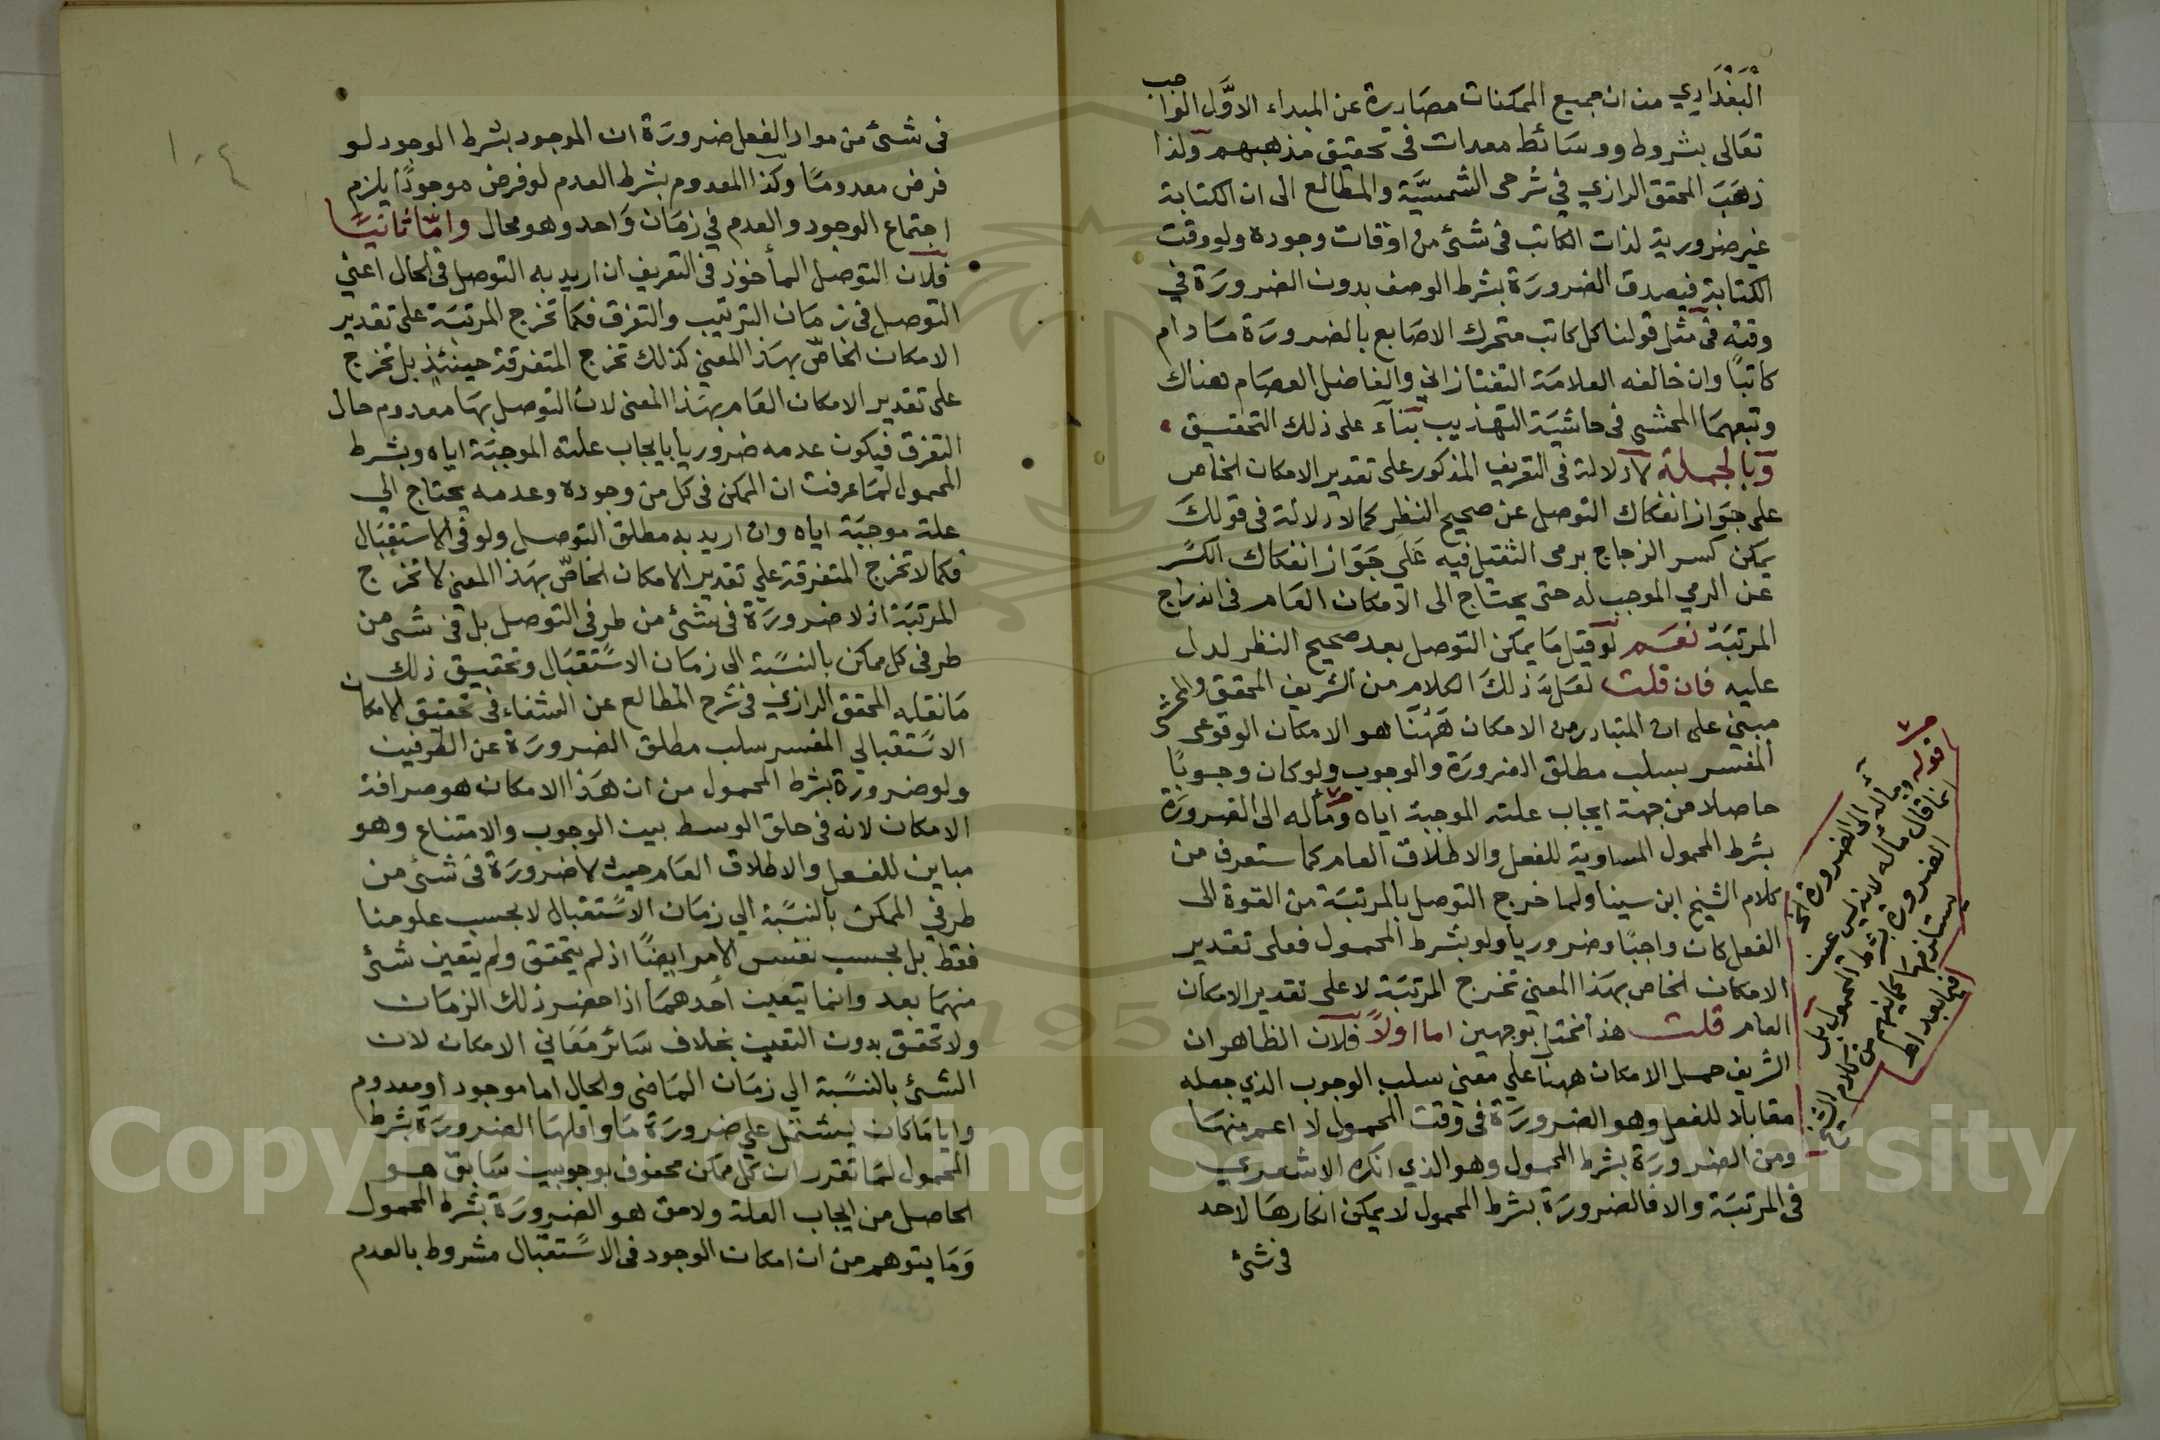 البغدادي من ان جميع الممكنات مصادرة عن المبداء الاوّل الواجب
تعالى بشروط ووسائط معدات فى تحقيق مذهبهم ولذا
ذهب المحقق الرازي في شرحى الشمسيّة والمطالع الى ان الكتابة
غير ضرورية لذات الكاتب فى شئ من اوقات وجوده ولو وقت
الكتابة فيصدق الضرورة بشرط الوصف بدون الضرورة في
وقته فى مثل قولنا كل كاتب متحرك الاصابع بالضرورة مادام
كاتبًا وان خالفه العلامة التفتازاني والفاضل العصام هناك
وتبعهما المحشى فى حاشية التهذيب بناء على ذلك التحقيق
وبالجملة لا دلالة فى التعريف المذكور على تقدير الامكان الخاص
على جواز انفكاك التوصل عن صحيح النظر كما لا دلالة فى قولك
يمكن كسر الزجاج برمى الثقيل فيه على جواز انفكاك الكسر
عن الرمي الموجب له حتى يحتاج الى الامكان العام فى اندراج
المرتبة نعم لو قيل ما يمكن التوصل بعد صحيح النظر لدل
عليه فان قلت لعل ذلك الكلام من الشريف المحقق والمحشى
مبني على ان المتبادر من الامكان ههنا هو الامكان الوقوعى
المفسر بسلب مطلق الضرورة والوجوب ولو كان وجوبًا
حاصلا من جهة ايجاب علته الموجبة اياه ومآله الى الضرورة
بشرط المحمول المساوية للفعل والاطلاق العام كما ستعرف من
كلام الشيخ ابن سينا ولما خرج التوصل بالمرتبة من القوة الى
الفعل كان واجبًا وضروريا ولو بشرط المحمول فعلى تقدير
الامكان الخاص بهذا المعني تخرج المرتبة لا على تقدير الامكان
العام قلت هذا مختل بوجهين اما اولاً فلان الظاهر ان
الشريف حمل الامكان ههنا على معنى سلب الوجوب الذي جعله
مقابلا للفعل وهو الضرورة فى وقت المحمول لا اعم منها
ومن الضرورة بشرط المحمول وهو الذي انكره الاشعري
فى المرتبة والا فالضرورة بشرط المحمول لا يمكن انكارها لاحد
فى شئ
قوله ومآله الى الضرورة الخ
انما قال مآله لانه ليس عين
الضرورة بشرط المحمول بل
يستلزمها كما يفهم من كلام الشيخ
فيما بعد اه
فى شئ من مواد الفعل ضرورة ان الموجود بشرط الوجود لو
فرض معدومًا وكذا المعدوم بشرط العدم لو فرض موجودًا يلزم
اجتماع الوجود والعدم في زمان واحد وهو محال وامّا ثانيًا
فلان التوصل المأخوذ فى التعريف ان اريد به التوصل فى الحال اعني
التوصل فى زمان الترتيب والتفرق فكما تخرج المرتبة على تقدير
الامكان الخاصّ بهذا المعني كذلك تخرج المتفرقة حينئذ بل تخرج
على تقدير الامكان العام بهذا المعنى لان التوصل بها معدوم حال
التفرق فيكون عدمه ضروريا بايجاب علته الموجبة اياه وبشرط
المحمول لما عرفت ان الممكن فى كل من وجوده وعدمه يحتاج الي
علة موجبة اياه وان اريد به مطلق التوصل ولو فى الاستقبال
فكما لا تخرج المتفرقة على تقدير الامكان الخاصّ بهذا المعنى لا تخرج
المرتبة اذ لا ضرورة فى شئ من طرفى التوصل بل فى شئ من
طرفى كل ممكن بالنسبة الى زمان الاستقبال وتحقيق ذلك
ما نقله المحقق الرازي فى شرح المطالع عن الشفاء فى تحقيق الامكان
الاستقبالي المفسر سلب مطلق الضرورة عن الطرفين
ولو ضرورة بشرط المحمول من ان هذا الامكان هو صرافة
الامكان لانه فى حاق الوسط بين الوجوب والامتناع وهو
مباين للفعل والاطلاق العام حيث لا ضرورة فى شئ من
طرفي الممكن بالنسبة الي زمان الاستقبال لا بحسب علومنا
فقط بل بحسب نفس الامر ايضًا اذ لم يتحقق ولم يتعين شئ
منهما بعد وانما يتعين أحدهما اذا حضر ذلك الزمان
ولا تحقق بدون التعين بخلاف سائر معاني الامكان لان
الشئ بالنسبة الي زمان الماضى والحال اما موجود او معدوم
وايا ما كان يشتمل علي ضرورة ما واقلها الضرورة بشرط
المحمول لما تقرر ان كل ممكن محفوف بوجوبين سابق هو
الحاصل من ايجاب العلة ولاحق هو الضرورة بشرط المحمول
وما يتوهم من ان امكان الوجود فى الاستقبال مشروط بالعدم
Copyright © King Saud University
1957